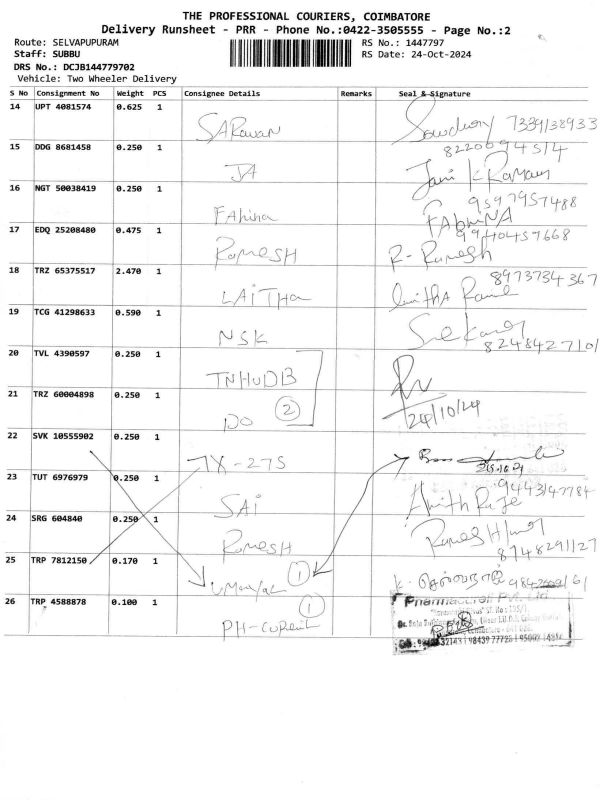 THE PROFESSIONAL COURIERS, COIMBATORE
Delivery Runsheet - PRR - Phone No.:0422-3505555 - Page No.:2
Route: SELVAPUPURAM RS No.: 1447797
Staff: SUBBU RS Date: 24-Oct-2024
DRS No.: DCJB144779702
Vehicle: Two Wheeler Delivery
S No Consignment No Weight PCS Consignee Details Remarks Seal & Signature
14 UPT 4081574 0.625 1 SARavan 7339138933
15 DDG 8681458 0.250 1 JA 8220094514
16 NGT 50038419 0.250 1 FAhina 9597957488 FAhiNA
17 EDQ 25208480 0.475 1 RamESH 9940457668 R- Ramesh
18 TRZ 65375517 2.470 1 LAITHA 8973734367
19 TCG 41298633 0.590 1 NSK 8248427101
20 TVL 4390597 0.250 1 TNHUDB
21 TRZ 60004898 0.250 1 DO 2 24/10/24
22 SVK 10555902 0.250 1 7X-275
23 TUT 6976979 0.250 1 SAI 9443147784
24 SRG 604840 0.250 1 RamESH 8748291127
25 TRP 7812150 0.170 1 1
26 TRP 4588878 0.100 1 PH-CUREIL 1